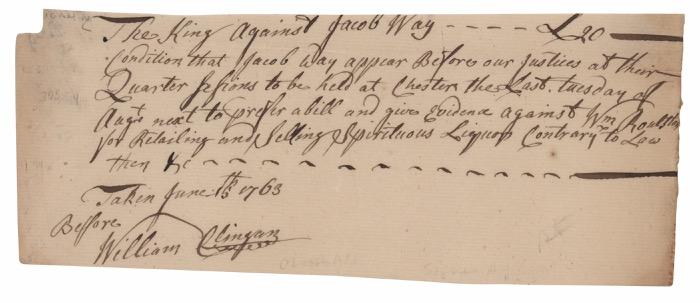 The King Against Jacob Way - - - - £20 -
Condition that Jacob Way appear Before our Justices at their
Quarter Sesions to be held at Chester the Last tuesday of
Augt next to prefer a bill and give Evidence against Wm
for Retailing and Selling Spirituous Liquor Contrary to Law
then &c
Taken June 15th 1763
Beffore
William Clingan